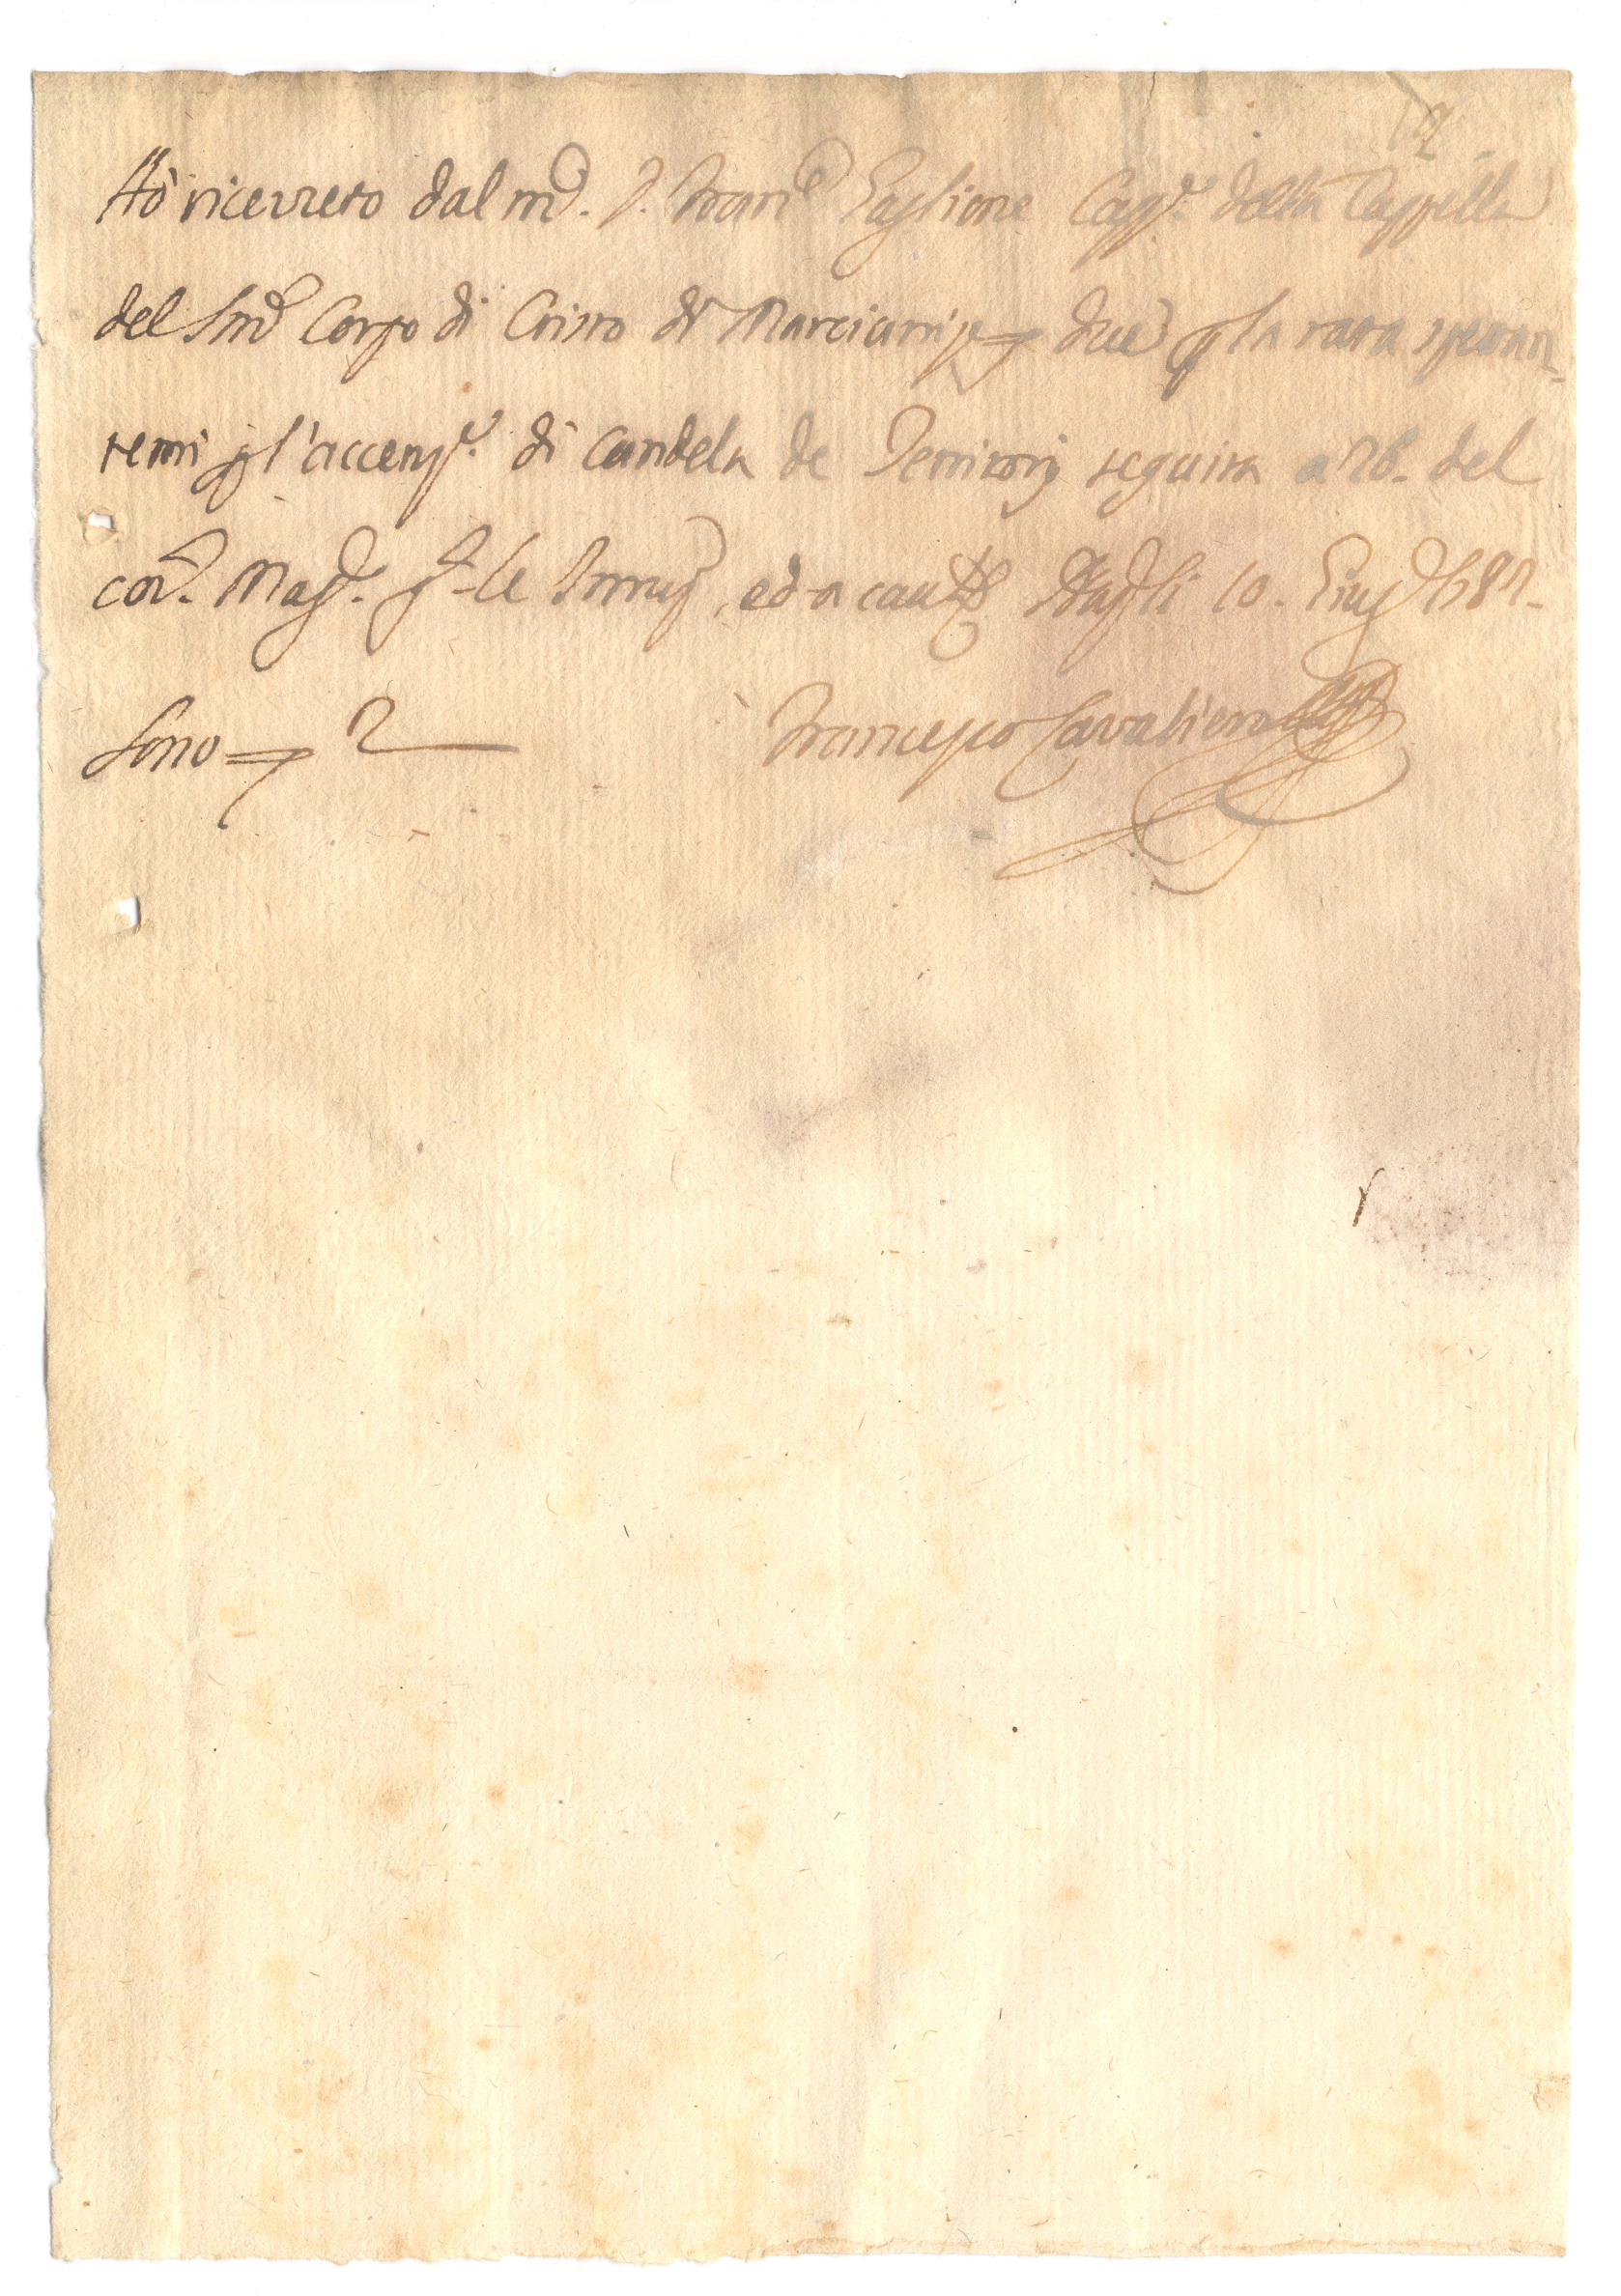 Hò ricevuto dal md. D. Franco Taglione Capp.e della Cappella
del SSmo Corpo di Cristo di Marcianise due p la rata spettan
temi p l'accens.e di candela de Territorij seguita a 26. del
cor. Mag.o ed a caut.a li 10. Giug.o 1787.
Sono 2
Francesco Cavaliero